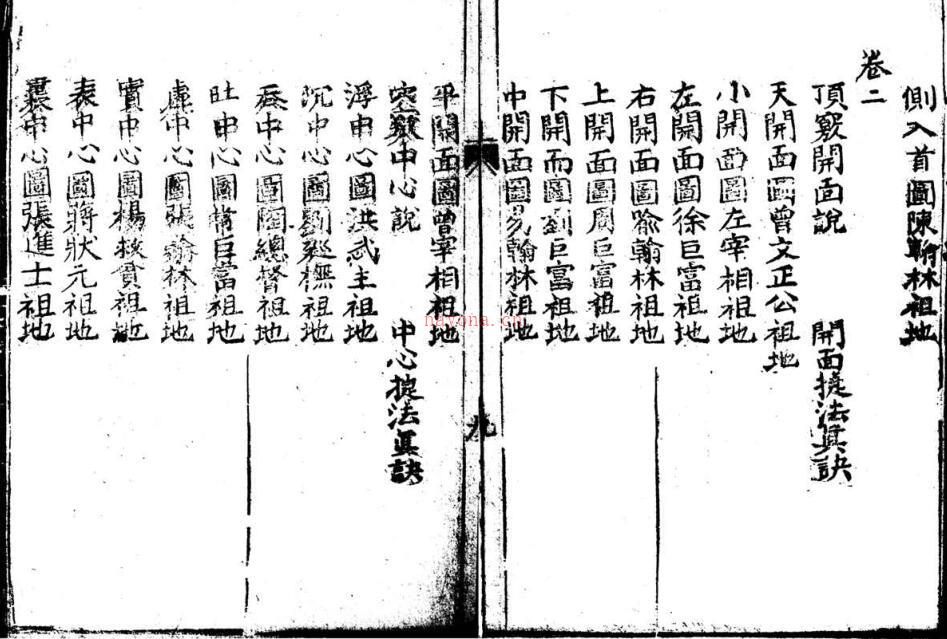 側入首圖陳翰林祖地
卷二
頂竅開面說 開面㨗法真訣
天開面圖曾文正公祖地
小開面圖左宰相祖地
左開面圖徐巨富祖地
右開面圖喻翰林祖地
上開面圖周巨富祖地
下開面圖劉巨富祖地
中開面圖易翰林祖地
九
平開面圖曾宰相祖地
突竅中心說 中心㨗法真訣
浮中心圖洪武主祖地
沉中心圖劉巡撫祖地
吞中心圖陶總督祖地
吐中心圖常巨富祖地
虛中心圖張翰林祖地
實中心圖楊救貧祖地
表中心圖蔣狀元祖地
裏中心圖張進士祖地
nayona.cn